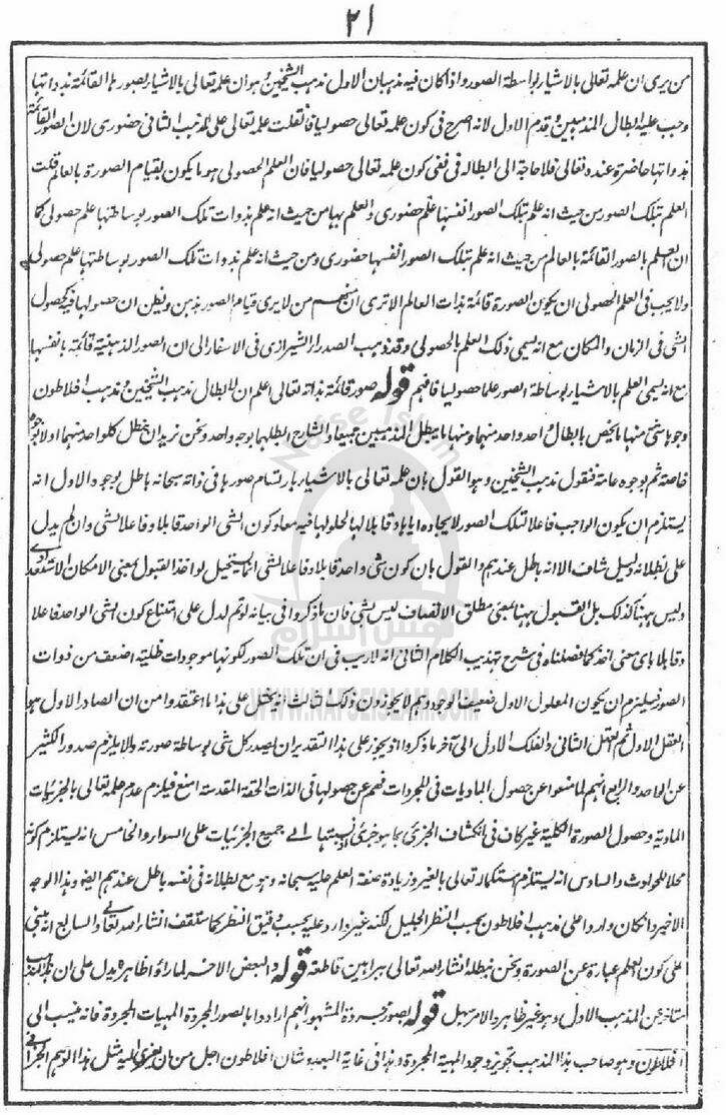 ٢١
من يرى ان علمه تعالى بالاشياء بواسطة الصور واذا كان فيه مذهبان الاول مذهب الشيخين وهو ان علمه تعالى بالاشياء بصورها القائمة بذواتها
وجب عليه ابطال المذهبين وقدم الاول لانه اصرح فى كون علمه تعالى حصوليا فانقلت علمه تعالى على المذهب الثانى حضورى لان الصور القائمة
بذواتها حاضرة عنده تعالى فلا حاجة الى ابطاله فى نفى كون علمه تعالى حصوليا فان العلم الحصولى هو ما يكون بقيام الصورة بالعالم قلت
العلم بتلك الصور من حيث انه علم بتلك الصور انفسها علم حضورى والعلم بها من حيث انه علم بذوات تلك الصور بوساطتها علم حصولى كما
ان العلم بالصور القائمة بالعالم من حيث انه علم بتلك الصور انفسها حضورى ومن حيث انه علم بذوات تلك الصور بوساطتها علم حصولى
ولا يجب فى العلم الحصولى ان يكون الصورة قائمة بذات العالم الا ترى ان منهم من لا يرى قيام الصور بذهن ويظن ان حصولها فيه كحصول
الشى فى الزمان والمكان مع انه يسمى ذلك العلم بالحصولى وقد ذهب الصدر الشيرازى فى الاسفار الى ان الصور الذهنية قائمة بانفسها
مع انه يسمى العلم بالاشياء بوساطة الصور علما حصوليا فافهم قوله صور قائمة بذاته تعالى اعلم ان لابطال مذهب الشيخين ومذهب افلاطون
وجوها شتى منها ما يخص بابطال واحد واحد منهما ومنها ما يبطل المذهبين جميعا والشارح ابطلها بوجه واحد ونحن نريد ان نبطل كل واحد منهما اولا بوجوه
خاصة ثم بوجوه عامة فنقول مذهب الشيخين وهو القول بان علمه تعالى بالاشياء بارتسام صورها فى ذاته سبحانه باطل بوجوه الاول انه
يستلزم ان يكون الواجب فاعلا لتلك الصور لايجاده اياها وقابلا لها لحلولها فيه معا وكون الشى الواحد قابلا وفاعلا لشى وان لم يدل
على بطلانه دليل شاف الا انه باطل عندهم والقول بان كون شى واحد قابلا وفاعلا لشى انما يستحيل لو اخذ القبول بمعنى الامكان الاستعدادى
وليس ههنا كذلك بل القبول ههنا بمعنى مطلق الاتصاف ليس بشى فان ما ذكروا فى بيانه لو تم لدل على امتناع كون الشى الواحد فاعلا
وقابلا باى معنى اخذ كما فصلناه فى شرح تهذيب الكلام الثانى انه لا ريب فى ان تلك الصور لكونها موجودات ظلية اضعف من ذوات
الصور فيلزم ان يكون المعلول الاول ضعيف الوجود وهم لا يجوزون ذلك ثالث انه يختل على هذا ما اعتقدوا من ان الصادر الاول هو
العقل الاول ثم العقل الثانى والفلك الاول الى آخر ما ذكروا اذ يجوز على هذا التقدير ان يصدر كل شى بوساطة صورته ولا يلزم صدور الكثير
عن الواحد والرابع انهم لما منعوا عن حصول الماديات فى المجردات فهم عن حصولها فى الذات الحقة المقدسة امنع فيلزم عدم علمه تعالى بالجزئيات
المادية وحصول الصورة الكلية غير كاف فى انكشاف الجزئى بما هو جزئى لنسبتها الى جميع الجزئيات على السواء والخامس انه يستلزم كونه
محلا للحوادث والسادس انه يستلزم استكماله تعالى بالغير وزيادة صفة العلم عليه سبحانه وهو مع بطلانه فى نفسه باطل عندهم ايضا وهذا الوجه
الاخير وان كان واردا على مذهب افلاطون بحسب النظر الجليل لكنه غير وارد عليه بحسب دقيق النظر كما ستقف انشاء الله تعالى والسابع انه يبتنى
على كون العلم عبارة عن الصورة ونحن نبطله انشاء الله تعالى ببراهين قاطعة قوله والبعض الآخر لما رأوا ظاهره يدل على ان هذا المذهب
متأخر عن المذهب الاول وهو غير ظاهر والامر سهل قوله بصور مجردة المشهور انهم ارادوا بالصور المجردة المهيات المجردة فانه ينسب الى
افلاطون وهو صاحب هذا المذهب تجويز وجود المهية المجردة وهذا فى غاية البعد وشان افلاطون اجل من ان يعزى اليه مثل هذا الوهم